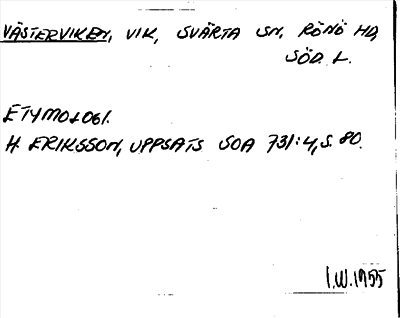 VÄSTERVIKEN, VIK, SVÄRTA SN, RÖNÖ HD,
SÖD. L.
ETYMOLOGI.
H. ERIKSSON, UPPSATS SOA 731:4, S. 80.
I.W. 1955